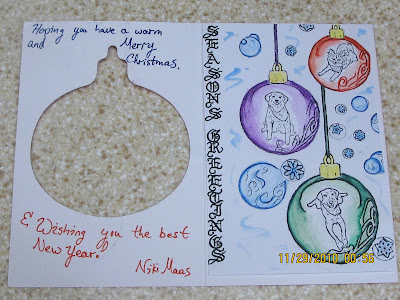 Hoping you have a warm
and Merry
Christmas.
& Wishing you the best
New Year!
Niki Maas
SEASONS GREETINGS